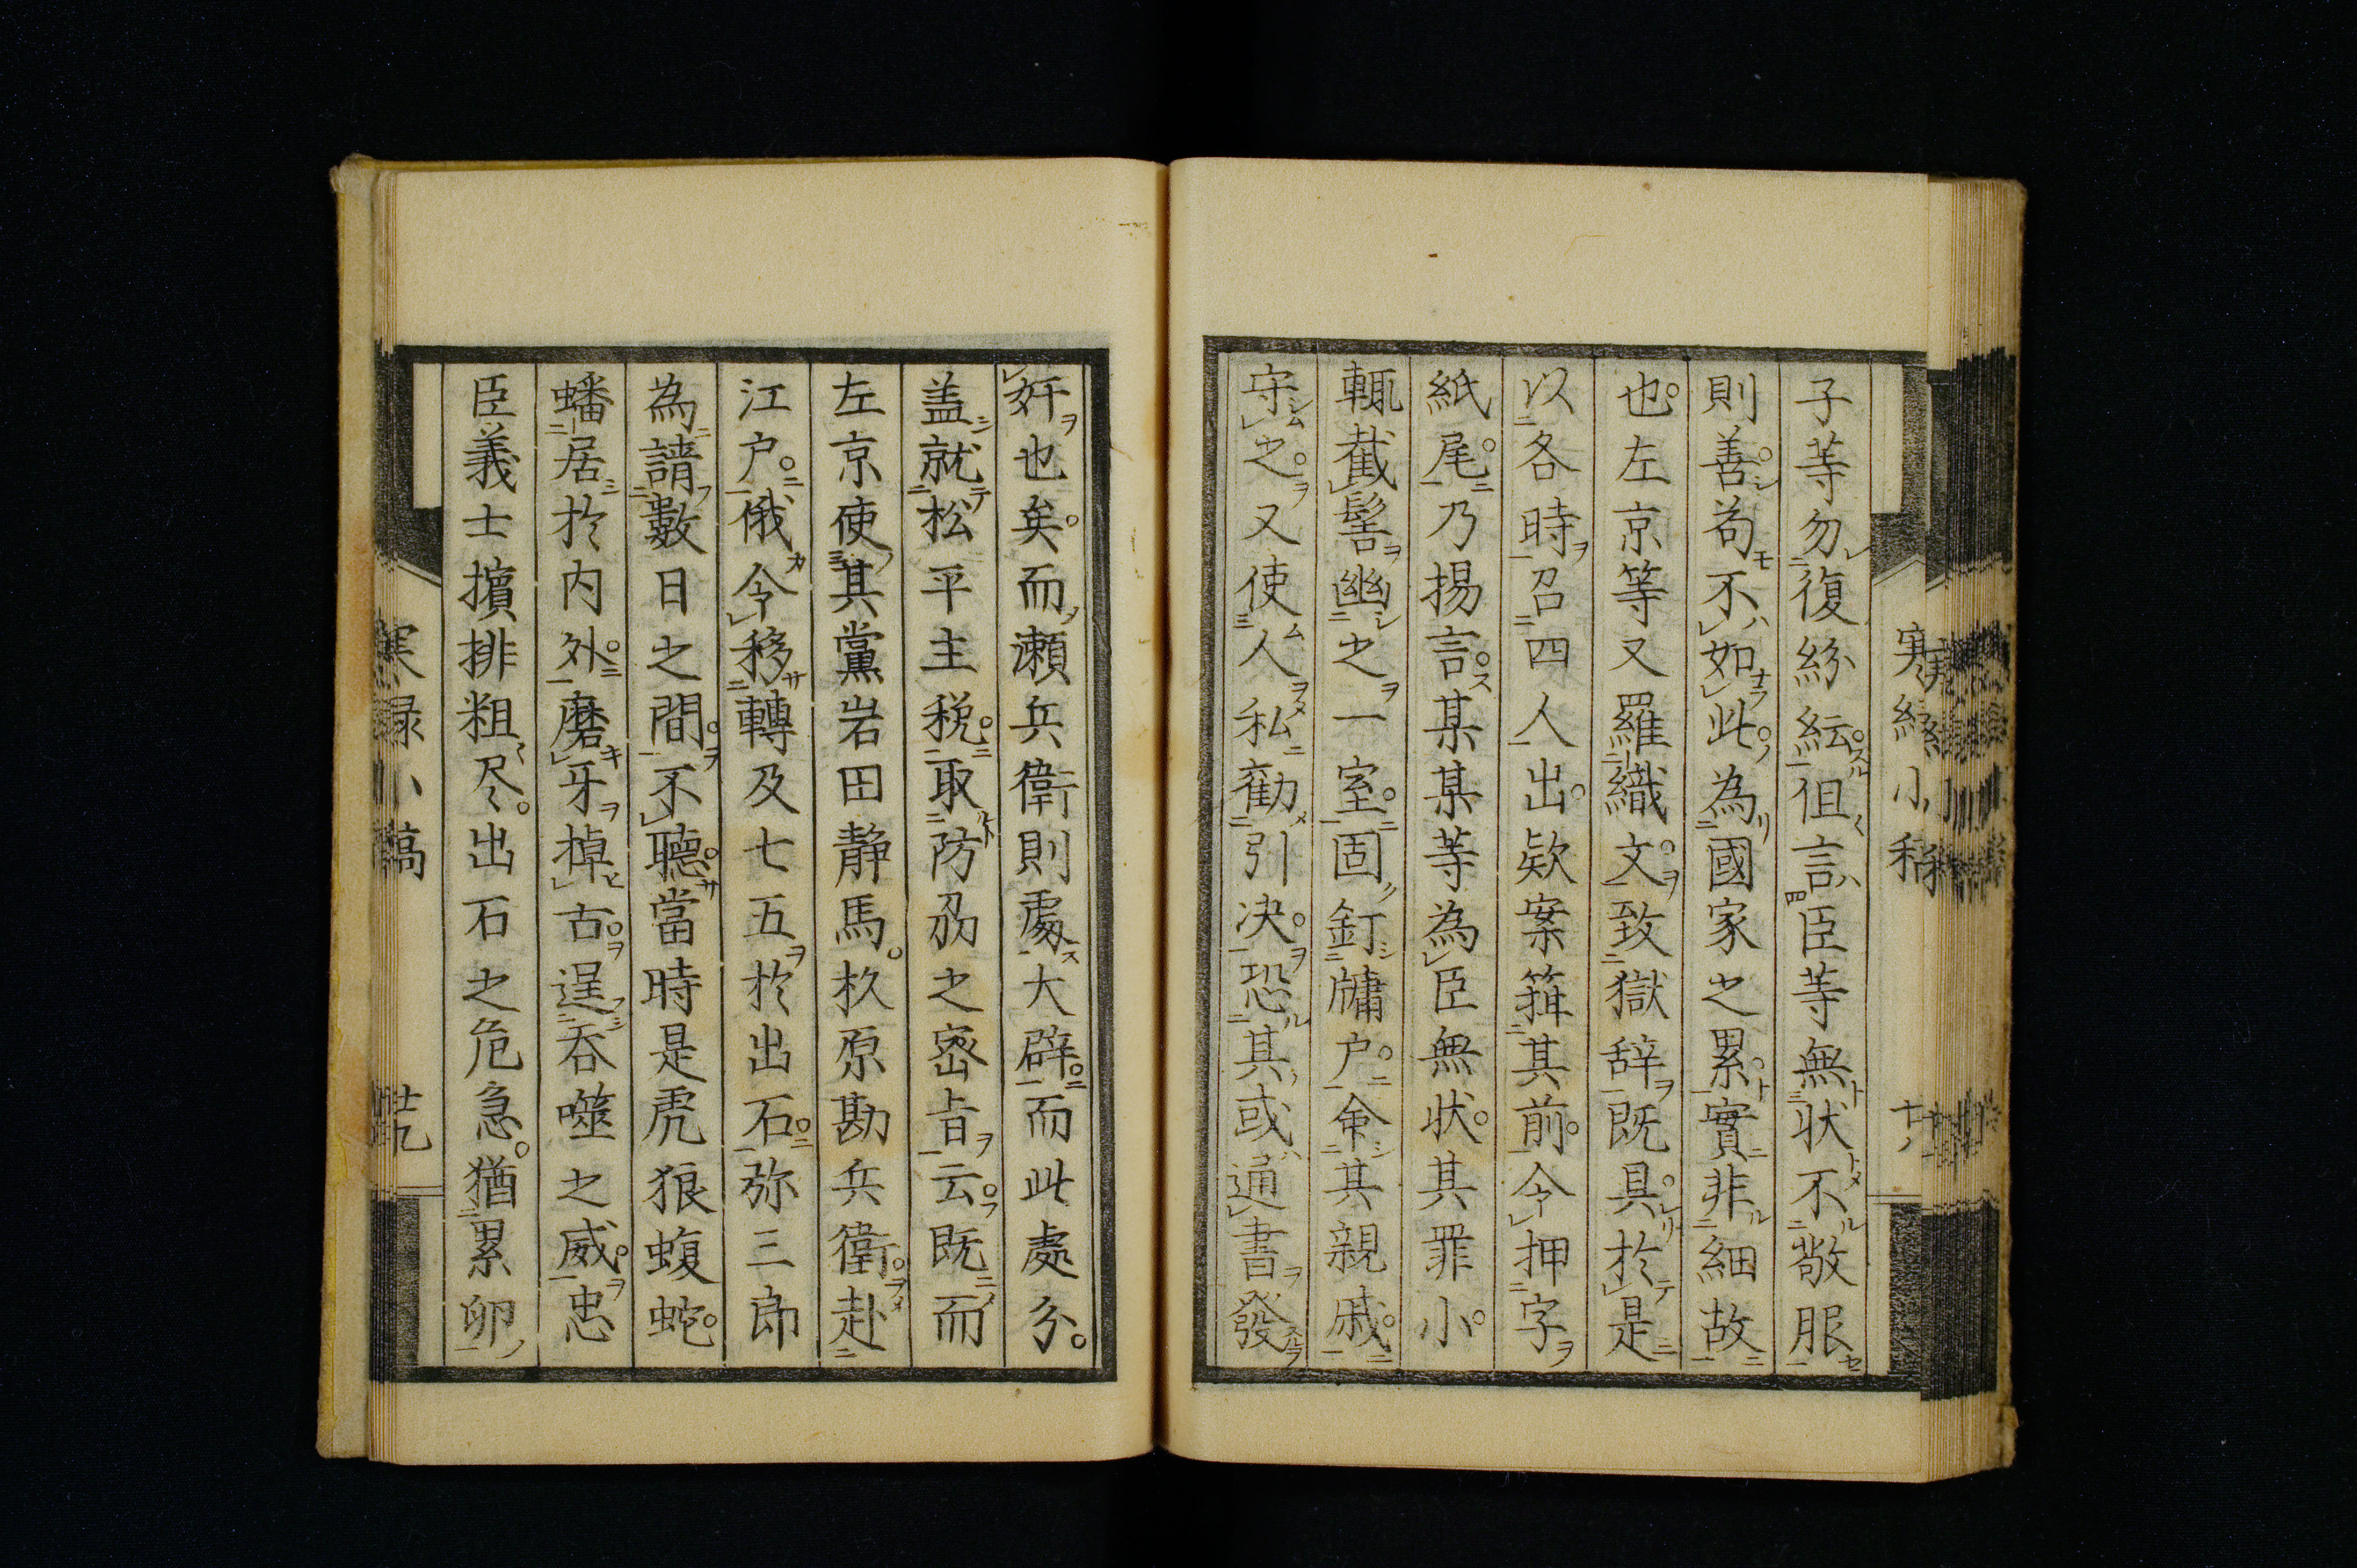 子等勿復紛紜但言臣等無状不敢服
則善苟不如此為國家之累實非細故
也左京等又羅織文致獄辞既具於是
以各時召四人出欵案箝其前令押字
紙尾乃揚言某某等為臣無状其罪小
輒截髻幽之一室固釘牗户命其親戚
守之又使人私勸引决恐其或通書發
奸也矣而瀬兵衛則處大辟而此處分
盖就松平主税取防刕之密旨云既而
左京使其黨岩田静馬杦原勘兵衛赴
江户俄令移轉及七五於出石弥三郎
為請數日之間不聽當時是虎狼蝮蛇
蟠居於内外磨牙掉舌逞吞噬之威忠
臣義士擯排粗尽出石之危急猶累卵